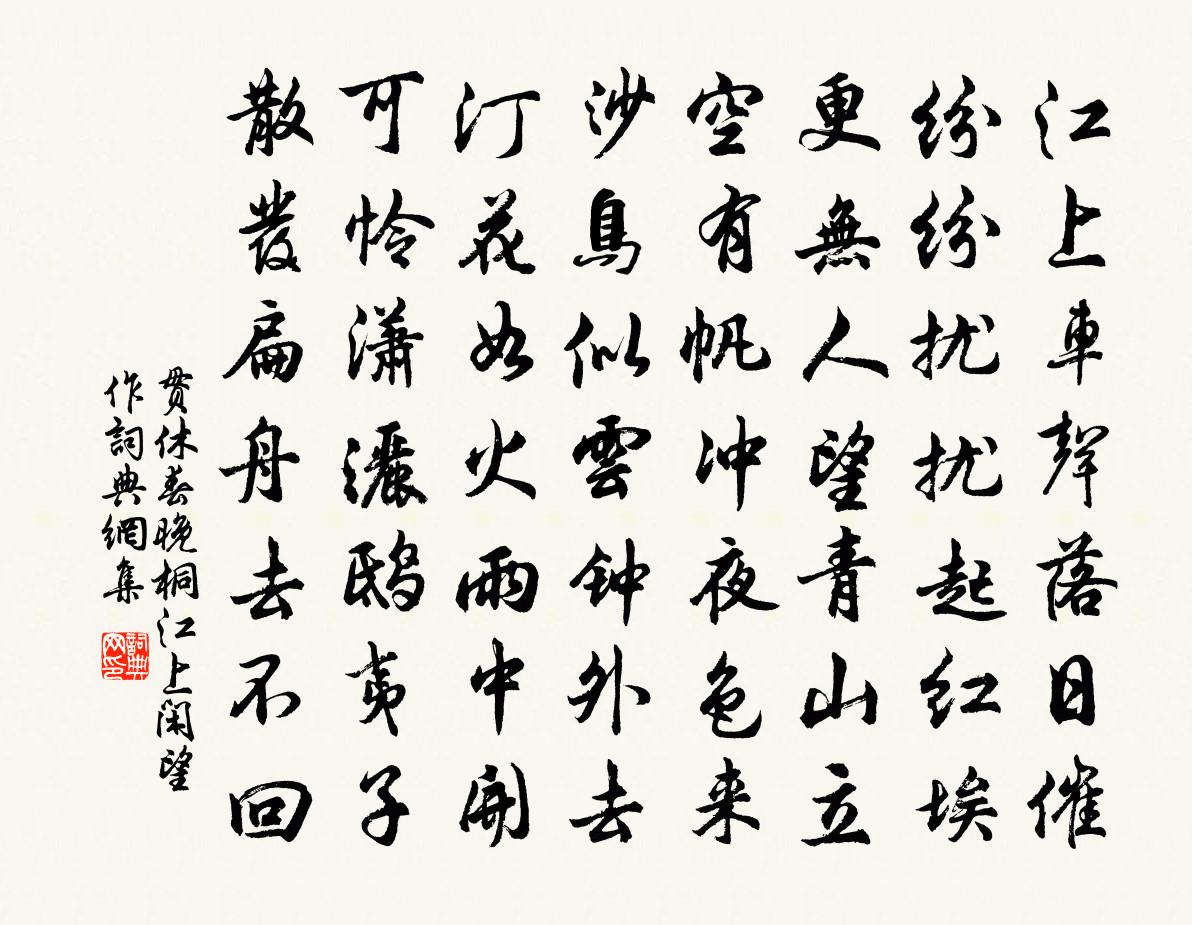 江上車聲落日催
紛紛扰扰起红埃
更無人望青山立
空有帆冲夜色来
沙鳥似雲钟外去
汀花如火雨中開
可怜瀟灑鴟夷子
散發扁舟去不回
貫休春晚桐江上閑望
作詞典網集
詞典网印